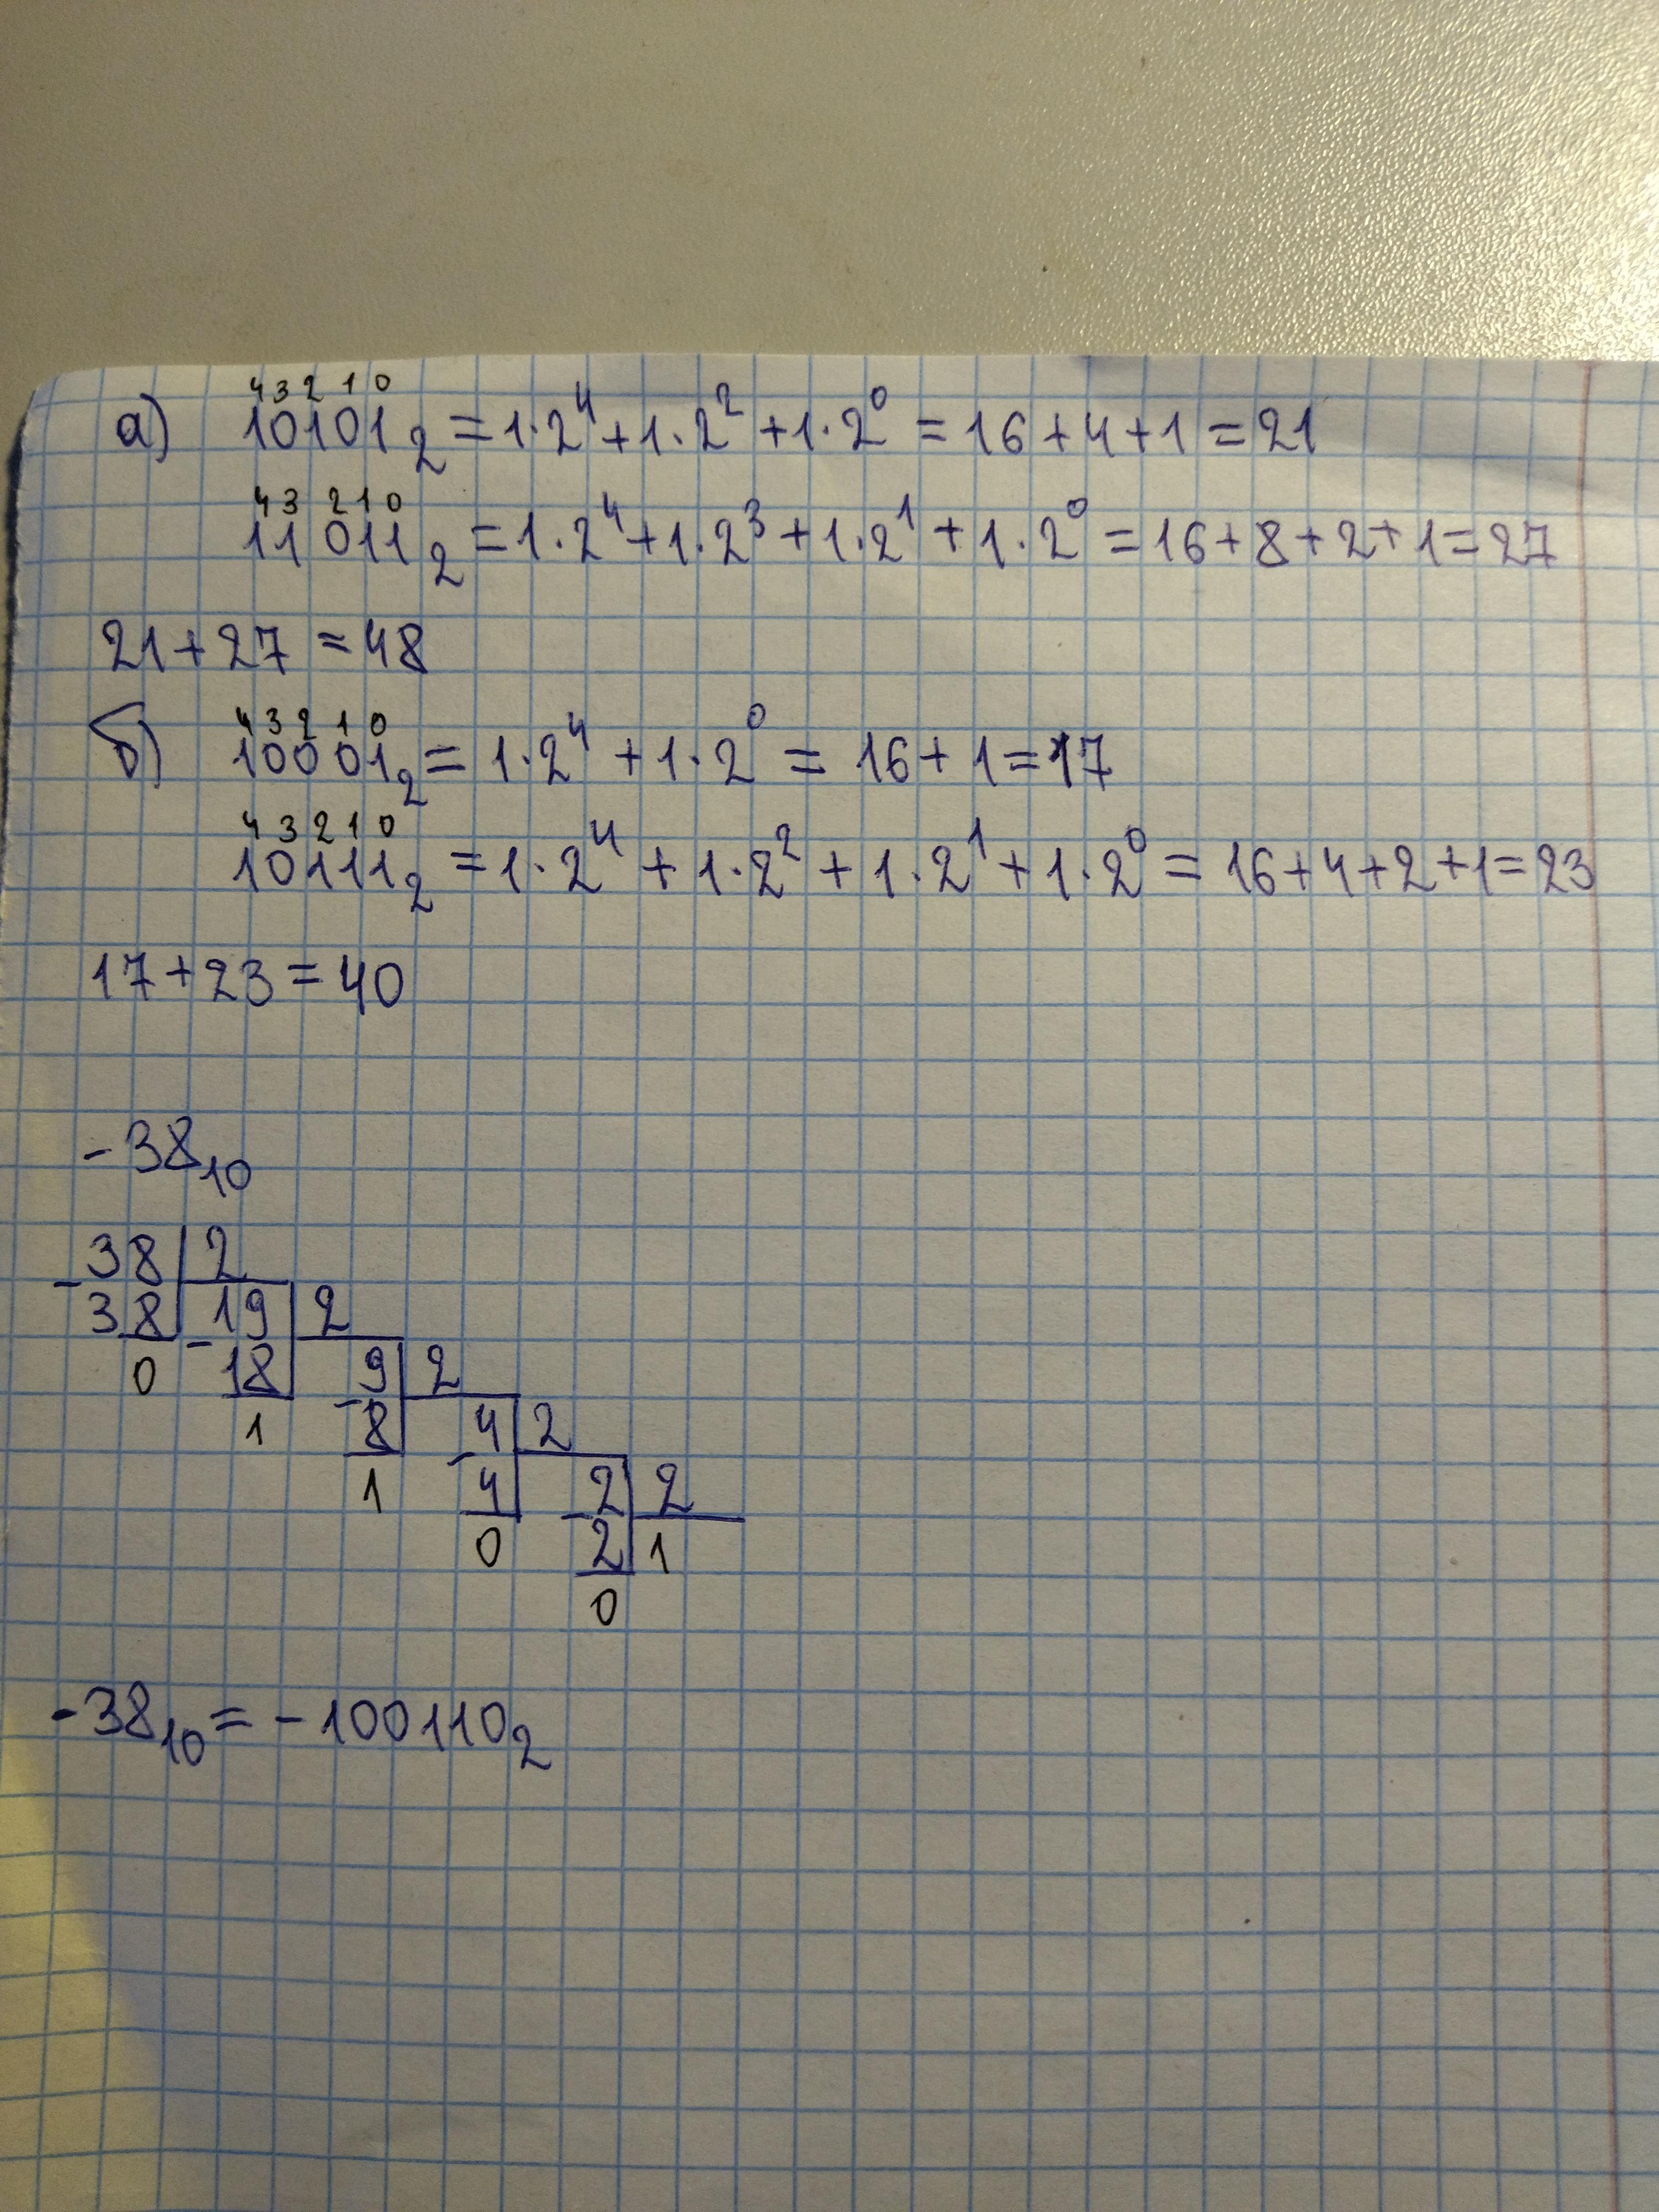 4 3 2 1 0
а) 10101₂ = 1·2⁴ + 1·2² + 1·2⁰ = 16 + 4 + 1 = 21
4 3 2 1 0
11011₂ = 1·2⁴ + 1·2³ + 1·2¹ + 1·2⁰ = 16 + 8 + 2 + 1 = 27
21 + 27 = 48
4 3 2 1 0
б) 10001₂ = 1·2⁴ + 1·2⁰ = 16 + 1 = 17
4 3 2 1 0
10111₂ = 1·2⁴ + 1·2² + 1·2¹ + 1·2⁰ = 16 + 4 + 2 + 1 = 23
17 + 23 = 40
-38₁₀
38 2
- 38 19 2
0 - 18 9 2
1 - 8 4 2
1 - 4 2 2
0 - 2 1
0
-38₁₀ = -100110₂